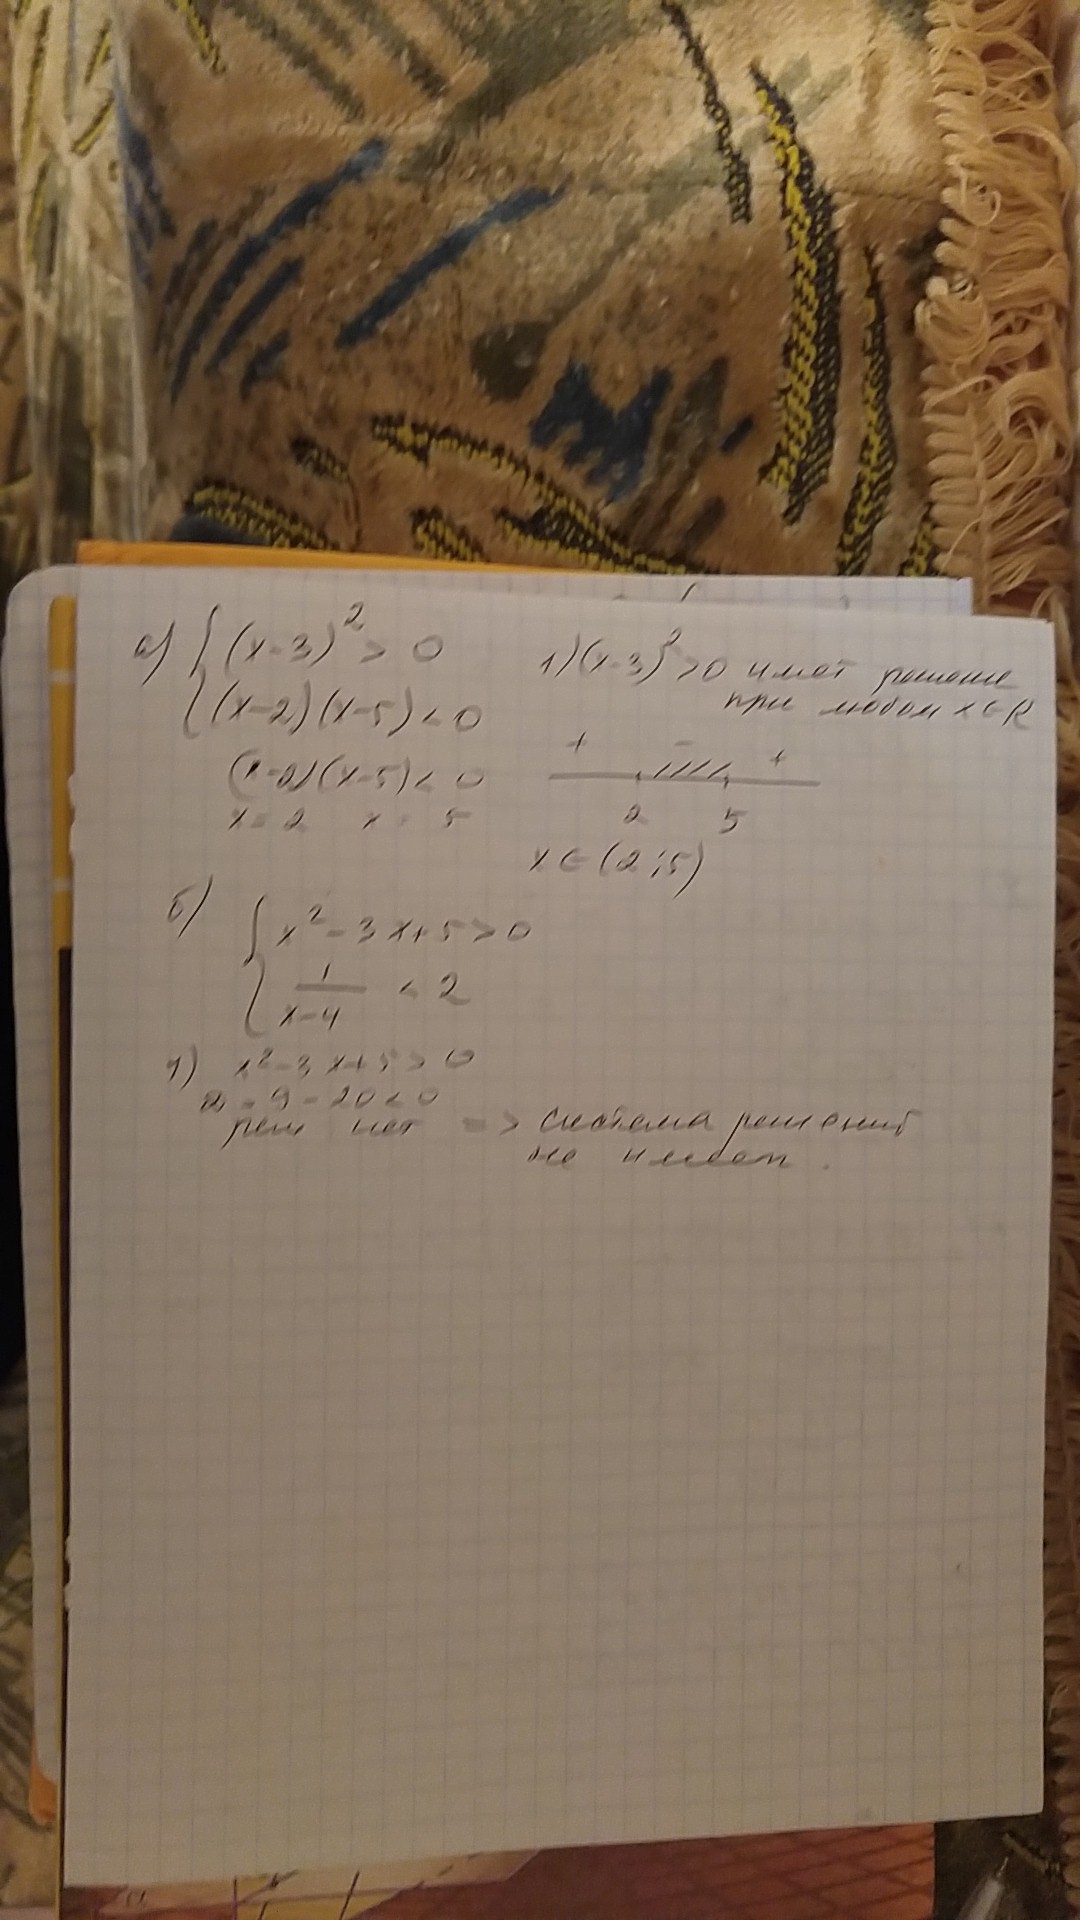 а) { (x-3)² > 0
(x-2)(x-5) < 0
(x-2)(x-5) < 0
x = 2 x = 5
1) (x-3)² > 0 имеет решение
при любом x ∈ R
+ - +
2 5
x ∈ (2;5)
б) { x² - 3x + 5 > 0
1/(x-4) < 2
1) x² - 3x + 5 > 0
= 9 - 20 < 0
реш нет => система решений
не имеет.